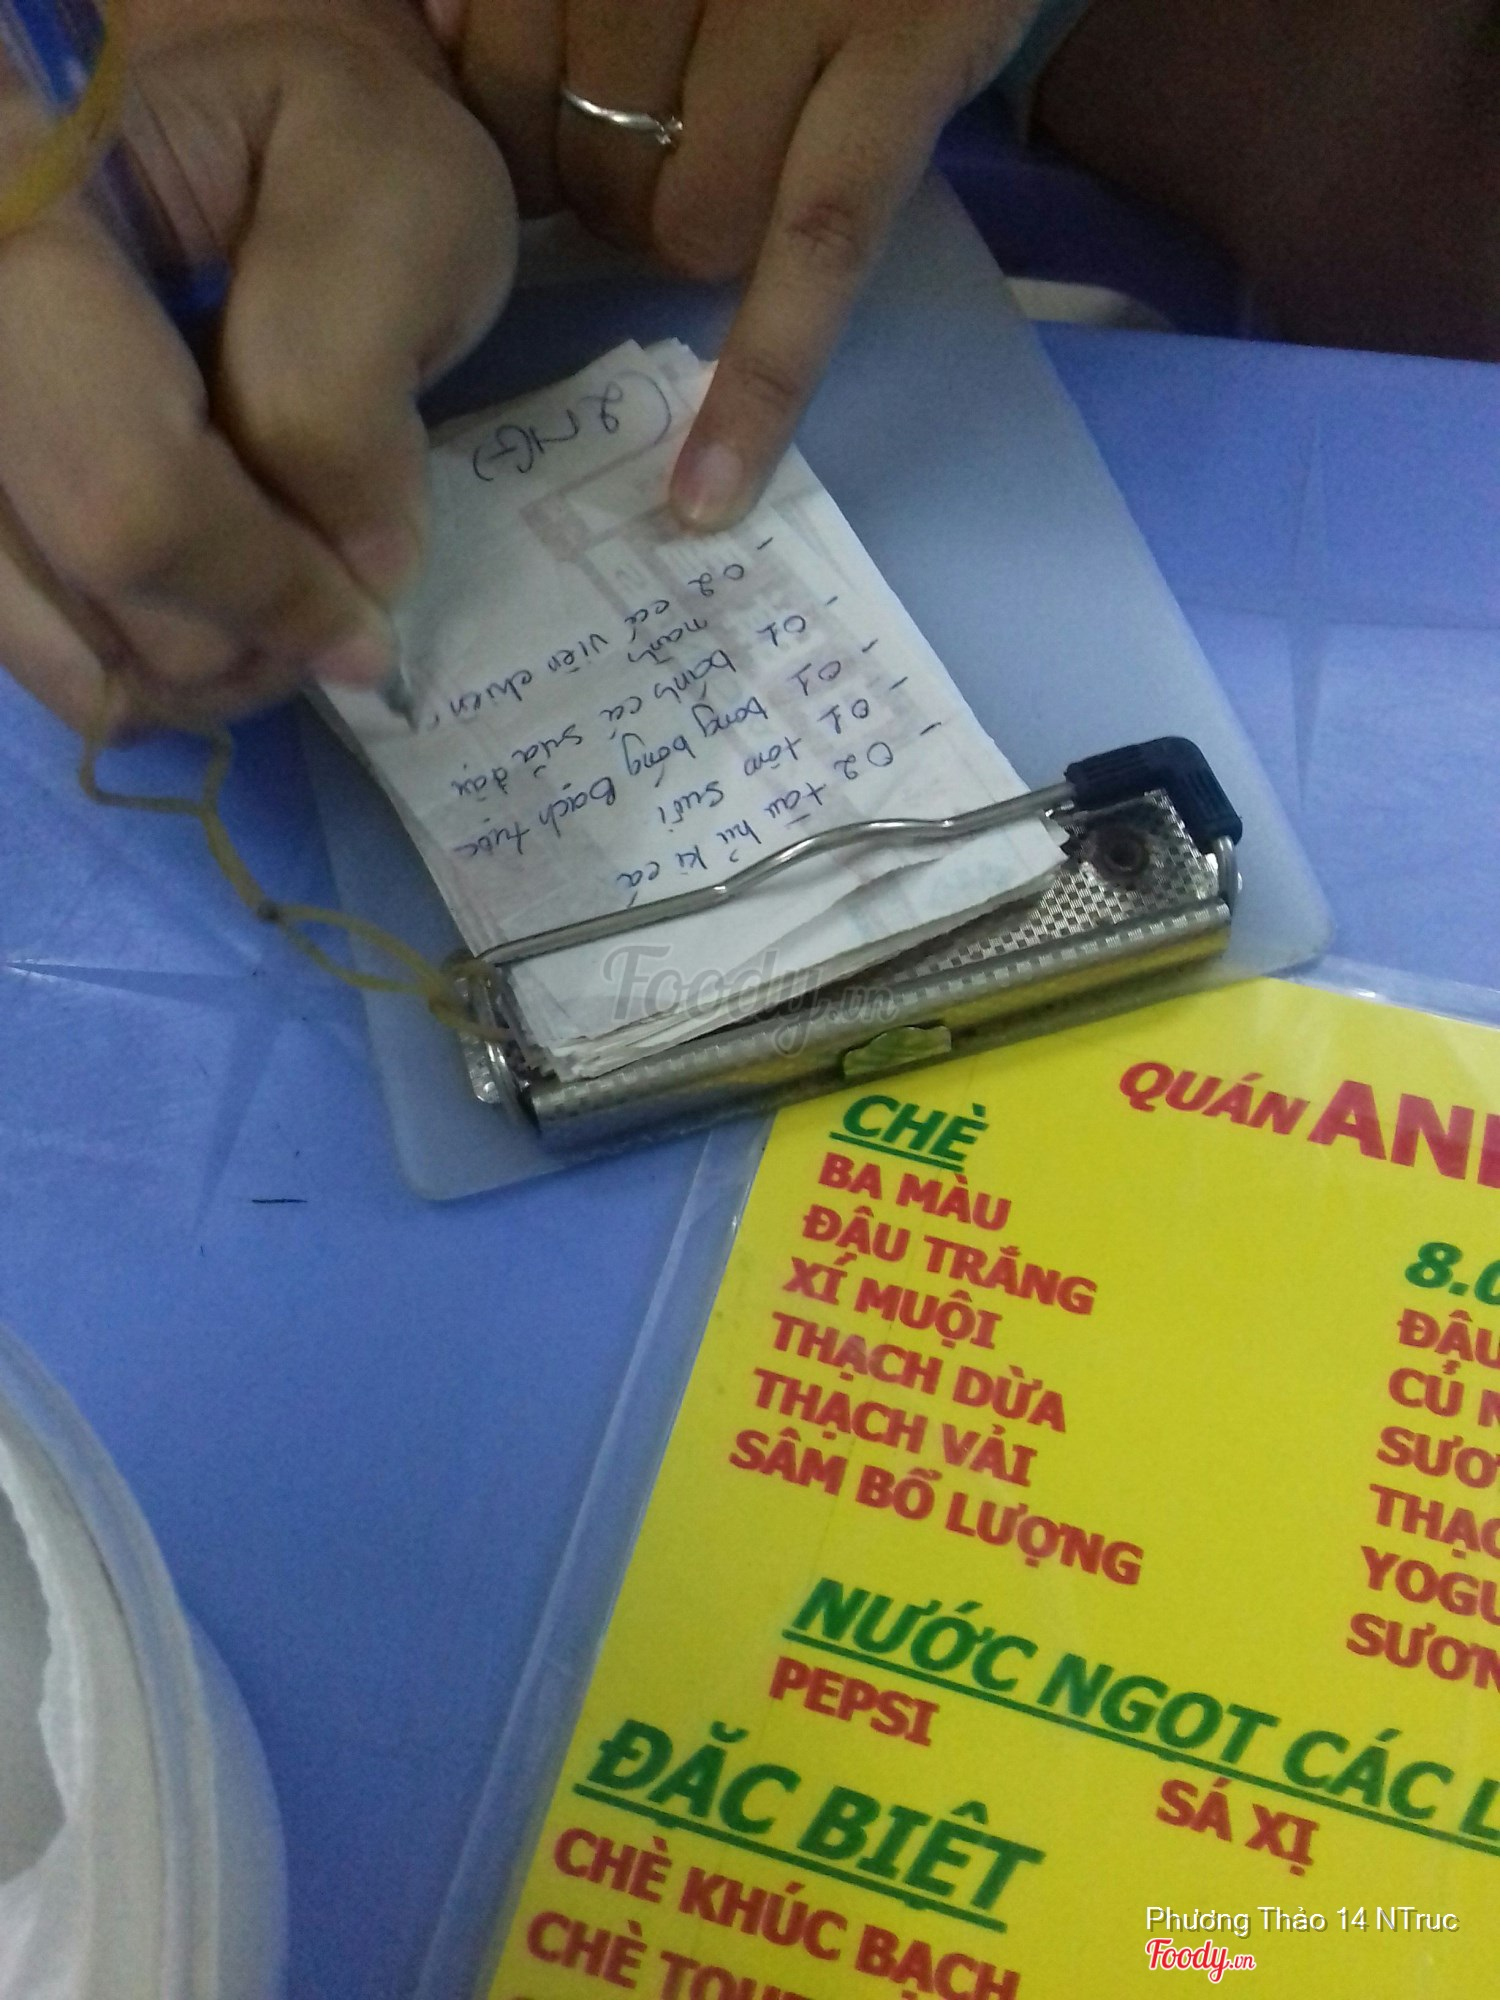 - 02 tàu hủ ki cá
- 01 tôm suối
- 01 bong bóng Bạch tuộc
- 01 bánh cá sữa đậu
nành
- 02 cá viên chiên
Foody.vn
QUÁN
CHÈ
BA MÀU
ĐẬU TRẮNG
XÍ MUỘI
THẠCH DỪA
THẠCH VẢI
SÂM BỔ LƯỢNG
NƯỚC NGỌT CÁC
PEPSI
SÁ XỊ
ĐẶC BIỆT
CHÈ KHÚC BẠCH
CHÈ
Phương Thảo 14 NTruc
Foody.vn